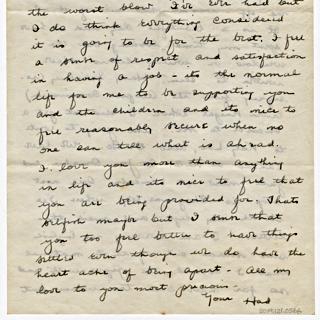 the worst blow I've ever had but
I do think everything considered
it is going to be for the best. I feel
a sense of respect and satisfaction
in having a job - its the normal
life for me to be supporting you
and the children and its nice to
feel reasonably secure when no
one can tell what is ahead.
I love you more than anything
in life and its nice to feel that
you are being provided for. Thats
selfish major but I know that
you too feel better to have things
settled even though we do have the
heart ache of being apart - All my
love to you most precious -
Your Had